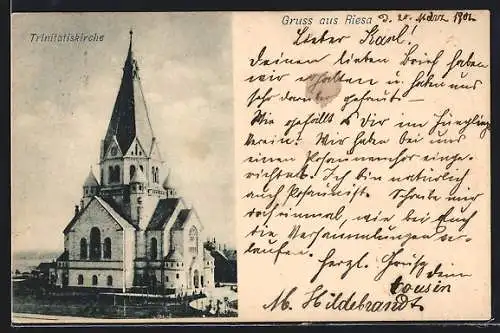 Trinitatiskirche
Gruss aus Riesa
d. 20. März 1902
Lieber Karl!
Deinen lieben Brief haben
wir erhalten u. haben uns
sehr darüber gefreut –
Wie gefällt es Dir im Jünglings
Verein? Wir haben bei uns
einen Posaunenchor einge-
richtet. Ich bin natürlich
auch Posaunist. Schreibe mir
doch einmal, wie bei Euch
die Versammlungen ver-
laufen. Herzl. Gruß
Dein
Cousin
M. Hildebrandt